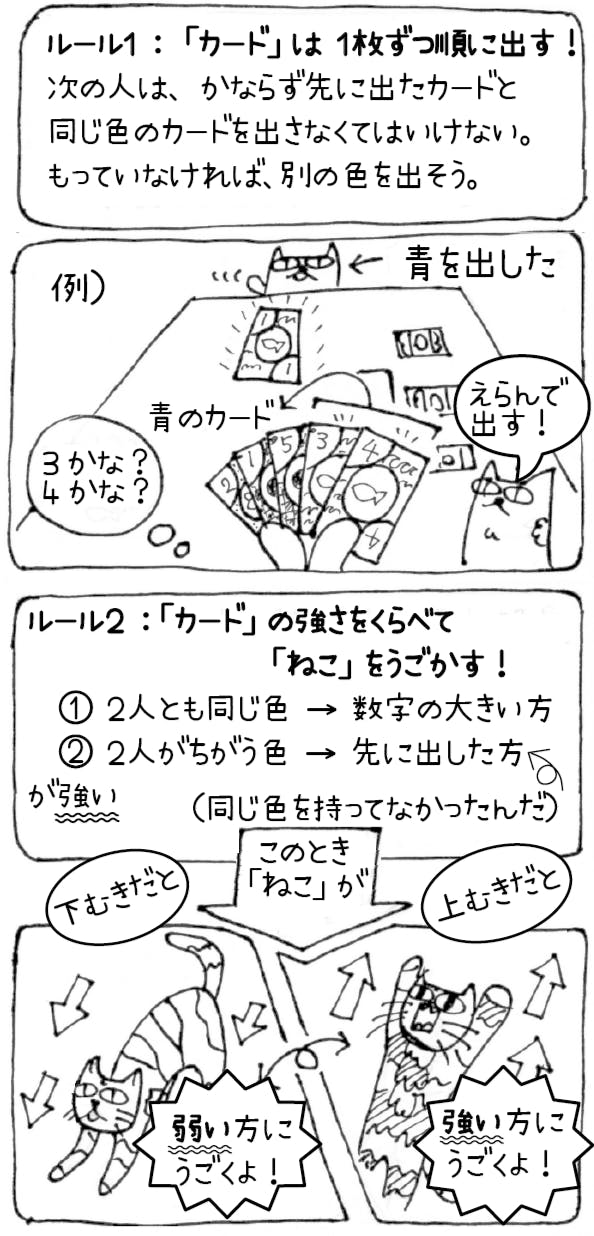 ルール1：「カード」は 1枚ずつ順に出す！
次の人は、かならず先に出たカードと
同じ色のカードを出さなくてはいけない。
もっていなければ、別の色を出そう。
例）
← 青を出した
青のカード
えらんで
出す！
3かな？
4かな？
2 1 5 3 4
4
ルール2：「カード」の強さをくらべて
「ねこ」をうごかす！
① 2人とも同じ色 → 数字の大きい方
② 2人がちがう色 → 先に出した方
が強い
（同じ色を持ってなかったんだ）
このとき
「ねこ」が
下むきだと
上むきだと
弱い方に
うごくよ！
強い方に
うごくよ！